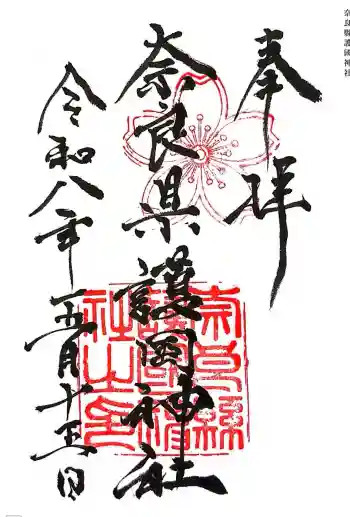 奈良縣護國神社
奉拝
奈良県護国神社
令和八年五月十五日
奈良縣護國神社之印